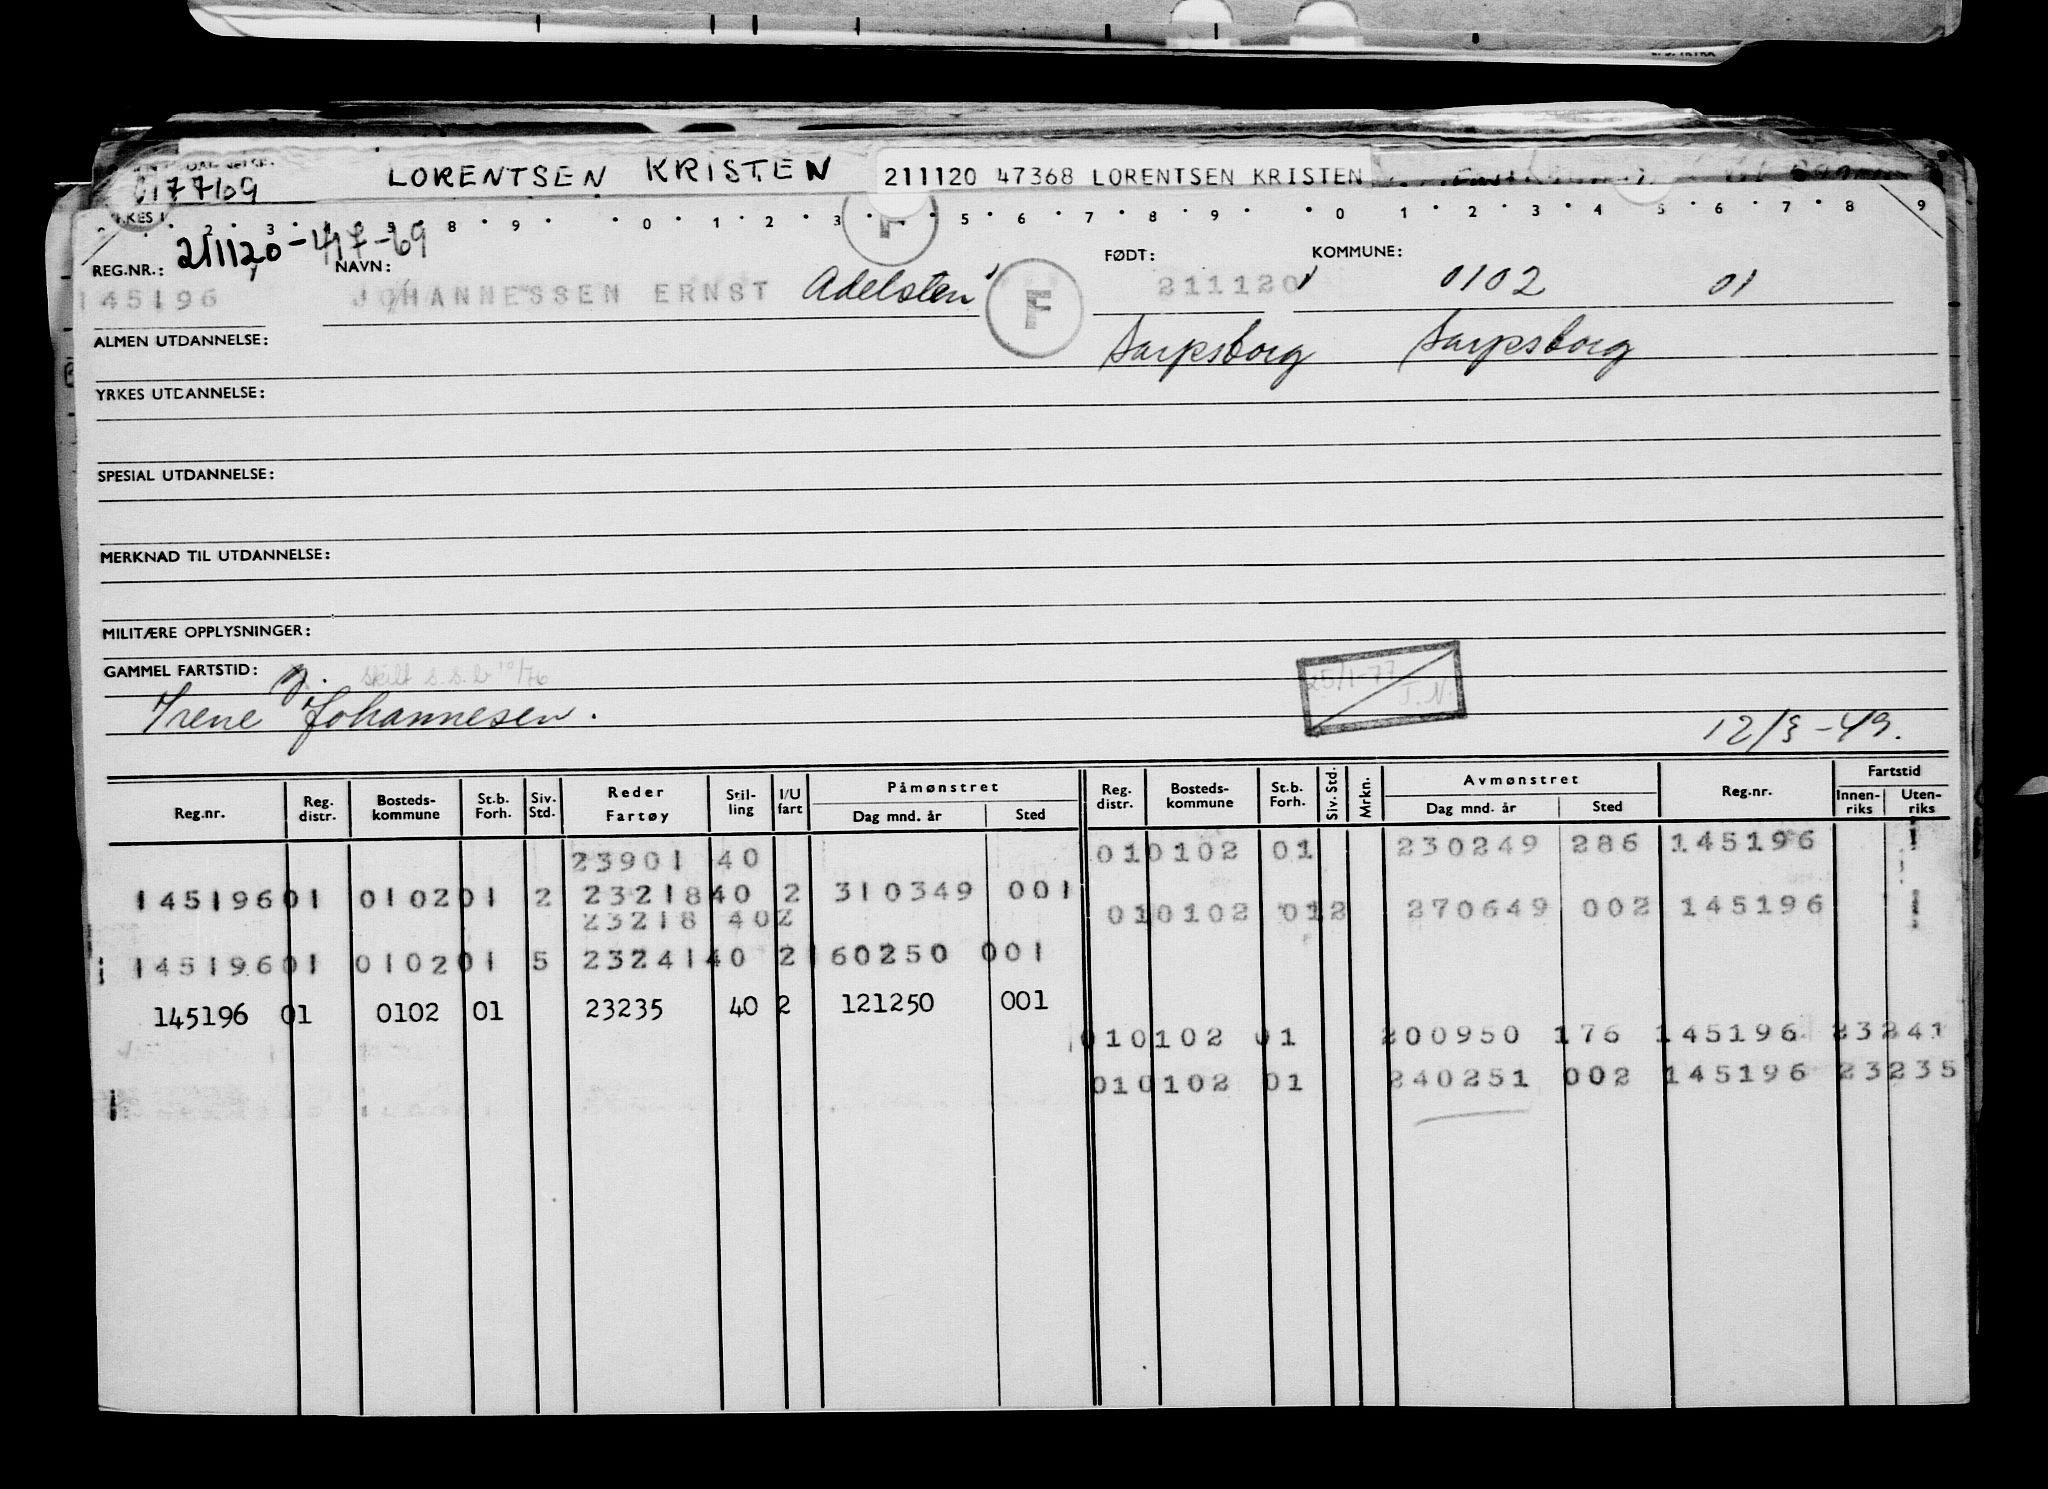 LORENTSEN KRISTEN 211120 47368 LORENTSEN KRISTEN
211120-417-69
REG.NR.: NAVN: FØDT: KOMMUNE:
145196 JOHANNESSEN ERNST Adelsten F 211120 0102 01
ALMEN UTDANNELSE: Sarpsborg Sarpsborg
YRKES UTDANNELSE:
SPESIAL UTDANNELSE:
MERKNAD TIL UTDANNELSE:
MILITÆRE OPPLYSNINGER:
GAMMEL FARTSTID: Skilt s.s.b 10/76
25/1-77 T.N.
Irene Johannesen. 12/3-49.
Reg.nr. Reg. distr. Bosteds-kommune St.b. Forh. Siv. Std. Reder Fartøy Stil-ling I/U fart Påmønstret Dag mnd. år Sted Reg. distr. Bosteds-kommune St.b. Forh. Siv. Std. Mrkn. Avmønstret Dag mnd. år Sted Reg.nr. Fartstid Innen-riks Uten-riks
23901 40 010102 01 230249 286 145196
145196 01 0102 01 2 23218 40 2 310349 001
23218 40 2 010102 01 2 270649 002 145196
145196 01 0102 01 5 23241 40 2 160250 001
145196 01 0102 01 23235 40 2 121250 001
010102 01 200950 176 145196 23241
010102 01 240251 002 145196 23235